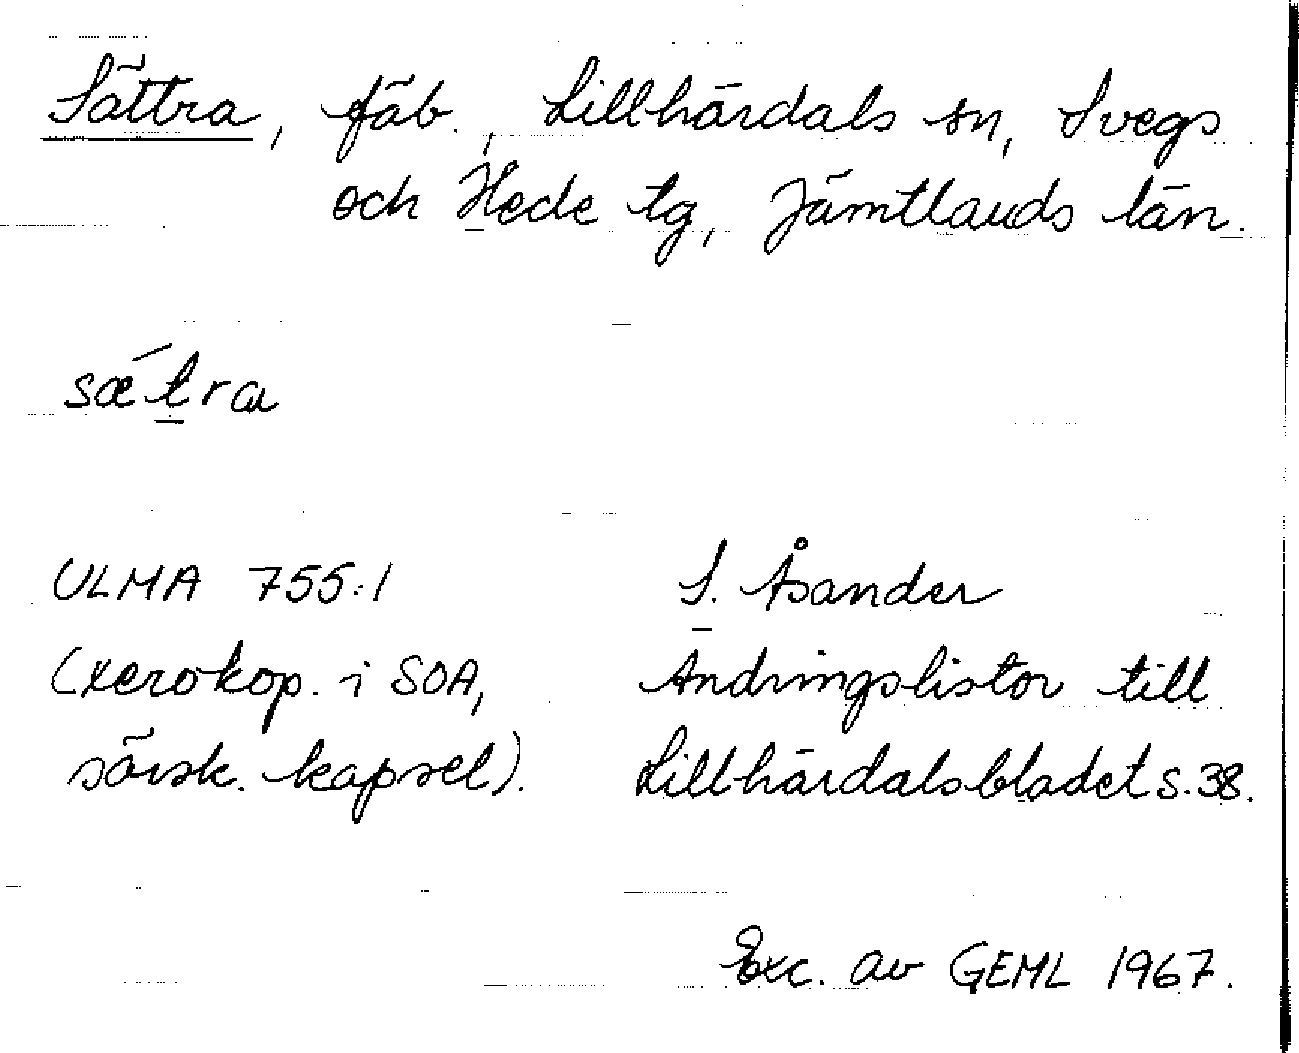 Sättra, fäb., Lillhärdals sn, Svegs
och Hede tg, Jämtlands län.
sǽt̲ra
ULMA 755:1 S. Åsander
(xerokop. i SOA, Ändringslistor till
särsk. kapsel). Lillhärdalsbladet s. 38.
Exc. av GEML 1967.